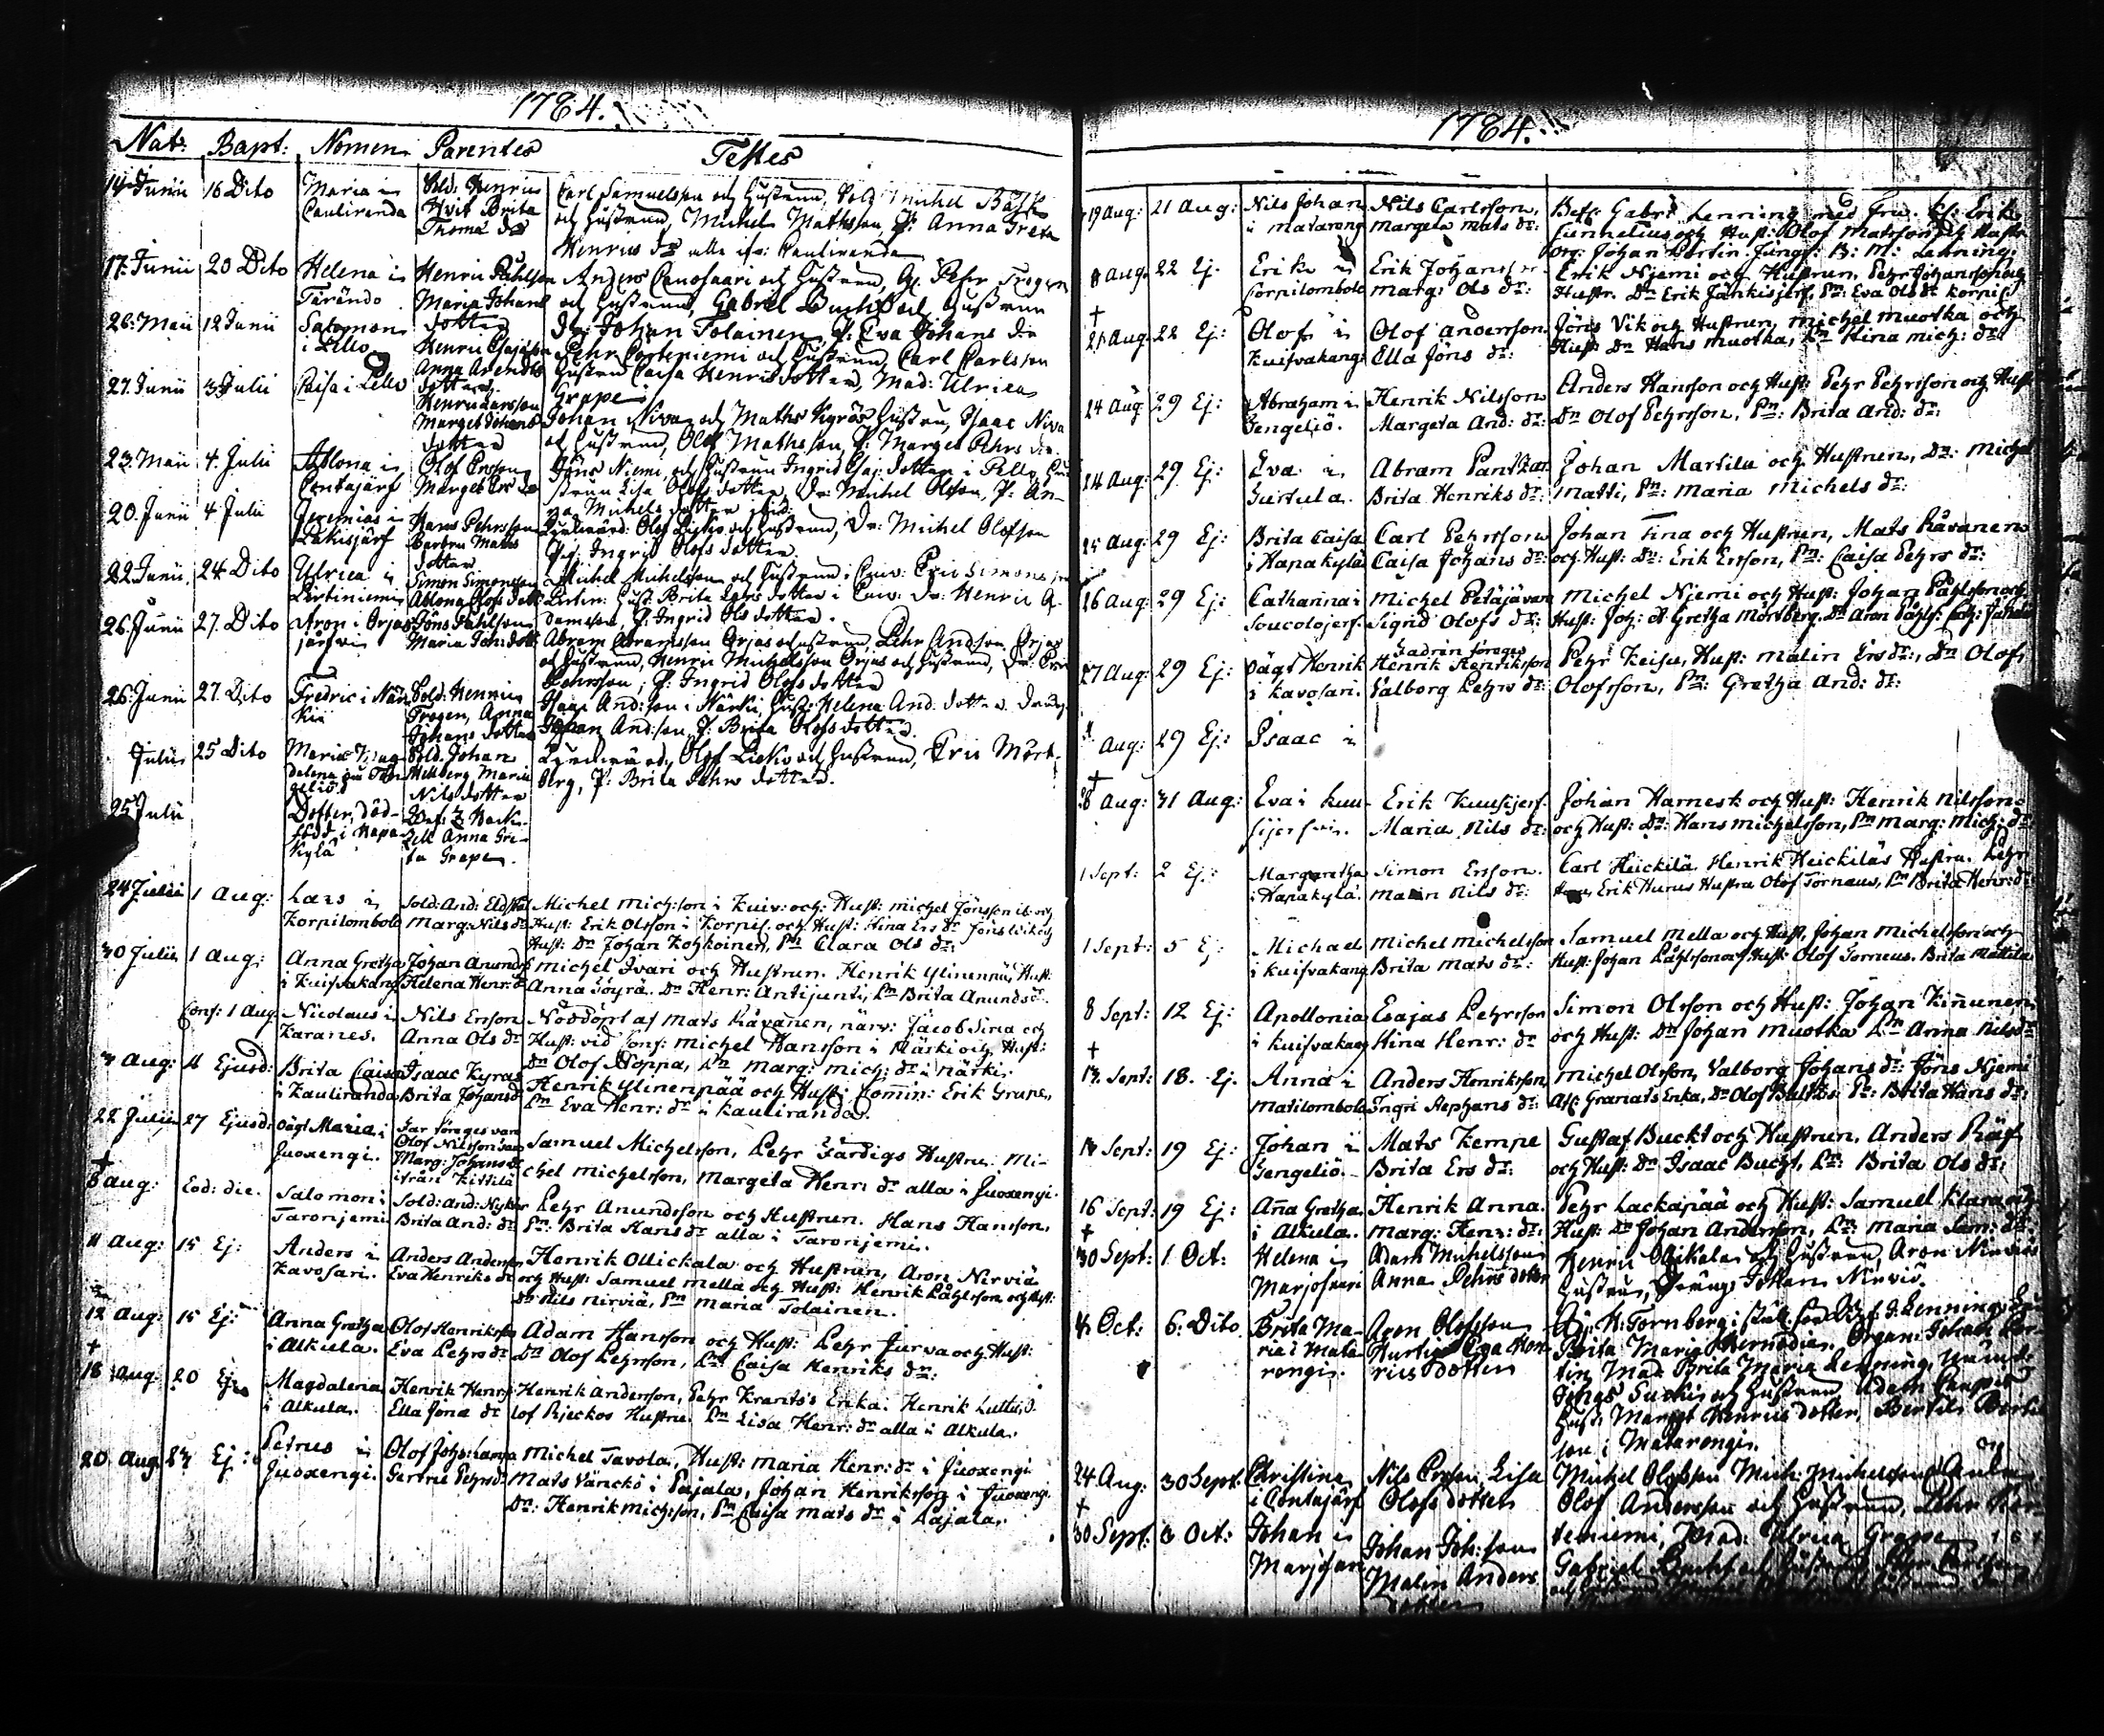 1784.
Nat: Bapt: Nomen Parentes Testes
14 Junii 16 Dito Maria i Cauliranda
Sold: Henric Hvit Brita Thomæ dr
Carl Samuelsson och Hustrun, Sold Michel
och Hustrun, Michel Mathsson, P: Anna Greta
Henrics dr alla ifr: Cauliranda
17. Junii 20 Dito Helena i Tärändo
Henric Påhlsson Maria Johans dotter
Anders Canosaari och Hustrun, Pehr Trogen
och Hustrun, Gabriel Bucht och Hustrun
Dr: Johan Tolainen P: Eva Johans dr
26: Maii 12 Junii Salomon i Pello
Henric Anna Arendts dotter
Pehr Corteniemi och Hustrun, Carl Carlsson
Hustru Caisa Henricsdotter, Mad: Ulrica
Grape
27. Junii 3 Julii Caisa i Pello
Henric Larsson Marget Johans dotter
Johan Niva och Maths Hustru, Isaac Niva
och Hustrun, Olof Mathsson, P: Marget Pehrs dr.
23. Maii 4. Julii Ablona i Contajärf
Olof Ersson Marget Ers dr
Jöns Niemi och Hustrun Ingrid dotter i Pello
Lisa Olofs dotter Dr: Michel Olsson, P: An-
na Michels dotter ibid:
20. Junii 4 Julii Jeremias i Lakisjärf
Hans Pehrsson Barbru Maths dotter
Olof Liekio och Hustrun, Dr: Michel Olofsson
Pig: Ingrid Olofs dotter.
22. Junii. 24 Dito Ulrica i Pirtiniemi
Simon Simonsson Ablona Olofs dott:
Michel Michelsson och Hustrun i Cuiv: Eric Simonsson
Hust: Brita Lars dotter i Cuiv: Dr: Henric A-
damsson, P: Ingrid Ols dotter.
26. Junii 27. Dito Aron i Orjasjärfvi
Jöns Påhlsson Maria Joh: dott:
Abram Abramsson Orjas och Hustrun, Pehr Andsson Orjas
och Hustrun, Henric Michelsson Orjas och Hustrun, Dr: Eric
Pehrsson, P: Ingrid Olofs dotter
26. Junii 27. Dito Fredric i Närkii
Sold: Henric Trogen, Anna Johans dotter
Isaac And:son i Närkii Hust: Helena And: dotter.
Johan And:son, P: Brita Olofs dotter.
Julii 25 Dito Maria Magdalena ifr: Tengeliö
Sold. Johan Hellberg Maria Nils dotter
Olof Liekio och Hustrun, Eric Mört-
berg, P: Brita Pehrs dotter.
25 Julii
Dotter, död-född i Hapakylä
Befs: Z. Backzell Anna Greta Grape.
24 Julii 1 Aug: Lars i Korpilombolo
Sold: And: Eldstål Marg: Nils dr
Michel Mich:son i Kuiv: och: Hust: Michel Jönsson ib: och
Hust: Erik Olsson i Korpil: och Hust: Stina Ers dr Jöns Vik och
Hust: Dn Johan Kohkoinen, Pn Clara Ols dr:
30 Julii 1 Aug: Anna Gretha i Kuifvakang
Johan Anunds Helena Henr: dr
Michel Ivari och Hustrun. Henrik Ylinenpää, Hust:
Anna Söyrä. Dn Henr: Antijunti, Pn Brita Anundsdr.
Conf: 1 Aug. Nicolaus i Karanes.
Nils Ersson Anna Ols dr
Nöddöpt af Mats Råvanen, närv: Jacob Sina och
Hust: vid Conf: Michel Hansson i Närki och Hust:
Dn Olof Noppa, Pn Marg: Mich: dr i Närki.
7 Aug: 11 Ejusd: Brita Caisa i Kauliranda
Isaac Kyras Brita Johansdr
Henrik Ylinenpää och Hust: Comin: Erik Grape,
Pn Eva Henr: dr i Kauliranda.
22 Julii 27 Ejusd: Oägt Maria i Juoxengi.
Far föreges vara Olof Nilsson Marg: Johans dr ifrån Kittilä
Samuel Michelsson, Pehr Färdigs Hustru. Mi-
chel Michelsson, Margeta Henr: dr alla i Juoxengi.
8 Aug: Eod: die. Salomon i Taronjemi
Sold: And: Nyker Brita And: dr
Pehr Anundsson och Hustrun. Hans Hansson,
Pn: Brita Hans dr alla i Taronjemi.
11 Aug: 15 Ej: Anders i Kavosari.
Anders Anders Eva Henriks dr
Henrik Ollickala och Hustrun, Aron Nirviä
och Hust: Samuel Mella och Hust: Henrik Påhlsson och Hust:
Dn Nils Nirviä, Pn Maria Tolainen.
12 Aug: 15 Ej: Anna Gretha i Alkula.
Olof Henriksson Eva Pehrs dr
Adam Hansson och Hust: Pehr Jurva och Hust:
Dn Olof Pehrsson, Pn: Caisa Henriks dr:
18 Aug: 20 Ej: Magdalena i Alkula.
Henrik Henrs: Ella Jöns dr
Henrik Andersson, Pehr Krants's Erika. Henrik Luttu, O-
lof Rjeckos Hustru. Pn Lisa Henr: dr alla i Alkula.
20. Aug. 23 Ej: Petrus i Juoxengi.
Olof Johs: Lampa Gertru Pehrs dr
Michel Tavola, Hust: Maria Henr: dr i Juoxengi
Mats Vänckö i Pajala, Johan Henriksson i Juoxengi.
Dn: Henrik Mich:son, Pn Caisa Mats dr i Pajala.
1784.
19 Aug: 21 Aug: Nils Johan i Matareng
Nils Carlsson, Margeta Mats dr:
Befs: Gabr: Lenning med Fru. Erik
och Hust: Olof Matsson och Hustr:
Org: Johan Portin. Jungf: B: M: Lenning.
8 Aug: 22 Ej. Erik i Corpilombolo
Erik Johansson Marg: Ols dr:
Erik Njemi och Hustrun, Pehr Johansson och
Hustr. Dn Erik Jankisjerf. Pn: Eva Ols dr Korpil:
21 Aug: 22 Ej: Olof i Kuifvakang:
Olof Andersson Ella Jöns dr:
Jöns Vik och Hustrun, Michel Muotka och
Hust: Dn Hans Muotka, Pn Stina Mich: dr:
24 Aug: 29 Ej: Abraham i Tengeliö.
Henrik Nilsson Margeta And: dr:
Anders Hansson och Hust: Pehr Pehrsson och Hust
Dn Olof Pehrsson, Pn: Brita And: dr:
24 Aug: 29 Ej: Eva i Turtula.
Abram Pantzar Brita Henriks dr:
Johan Martila och Hustrun, Dn: Michel
Matti, Pn: Maria Michels dr:
25 Aug: 29 Ej: Brita Caisa i Hapakylä
Carl Pehrsson Caisa Johans dr:
Johan Fina och Hustrun, Mats Råvanen
och Hust: Dn: Erik Ersson, Pn: Caisa Pehrs dr:
26 Aug: 29 Ej: Catharina i Soucolojerf.
Michel Petäjävara Sigrid Olofs dr:
Michel Njemi och Hust: Johan Påhlsson och
Hust: Joh: dr Gretha Mörtberg. Dn Aron Påhls:
27 Aug: 29 Ej: Oägt Henrik i Kavosari.
Fadren föreges Henrik Henriksson Valborg Pehrs dr:
Pehr Keisu, Hust: Malin Ers dr:, Dn Olof
Olofsson, Pn: Gretha And: dr:
Aug: 29 Ej: Isaac i
28 Aug: 31 Aug: Eva i Kuusijerfvi.
Erik Kuusijerf. Maria Nils dr:
Johan Harnesk och Hust: Henrik Nilsson
och Hust: Dn: Hans Michelsson, Pn Marg: Mich: dr:
1 Sept: 2 Ej: Margaretha i Hapakylä.
Simon Ersson. Malin Nils dr:
Carl Heickilä. Henrik Heickiläs Hustru. Pehr
Erik Hurus Hustru Olof Torneus, Pn Brita Henr: dr:
1 Sept: 5 Ej: Michael i Kuifvakang
Michel Michelsson Brita Mats dr:
Samuel Mella och Hust, Johan Michelsson och
Hust: Johan Påhlsson och Hust: Olof Torneus. Brita Mattila
8 Sept: 12 Ej: Apollonia i Kuifvakang
Esajas Pehrsson Stina Henr: dr
Simon Olsson och Hust: Johan Kinnunen
och Hust: Dn Johan Muotka Pn Anna Nils dr
17. Sept: 18. Ej. Anna i Matilombolo
Anders Henriksson, Ingri Stephans dr:
Michel Olsson, Valborg Johans dr: Jöns Njemi
Erika, Dn Olof Pn: Brita Hans dr:
14 Sept: 19 Ej: Johan i Tengeliö.
Mats Kempe Brita Ers dr:
Gustaf Buckt och Hustrun, Anders Räf
och Hust: Dn Isaac Bucht, Pn: Brita Ols dr:
16 Sept: 19 Ej: Aña Gretha i Alkula.
Henrik Anna. Marg: Henr: dr:
Pehr Lackapää och Hust: Samuel Klara och
Hust: Dn Johan Andersson, Pn: Maria Sam: dr:
30 Sept: 1 Oct: Helena i Marjosaari
Adam Michelsson Anna Pehrs dotter
Henric Ollikala och Hustrun, Aron Nirviäs
Hustru, Dräng: Johan Nirviä.
4 Oct: 6: Dito Brita Maria i Matarengi.
Aron Olofsson Hurtig Eva Henrics dotter
Tornberg i ställ: för Bef: G. Lenning
Brita Maria Organ: Johan Por-
tin, Mad. Brita Maria Lenning,
Jonas och Hustrun, Adam
Hust: Marget Henrics dotter, Bertil Bertils-
son i Matarengi.
24 Aug: 30 Sept: Christina i Contajärf
Nils Ersson, Lisa Olofs dotter
Michel Olofsson Mich: Michelsson
Olof Andersson och Hustrun, Pehr Kor-
teniemi, Mad: Ulrica Grape
30 Sept: 3 Oct: Johan i Marjosari
Johan Joh:son Malin Anders dotter
Gabriel Bucht och Hustrun,